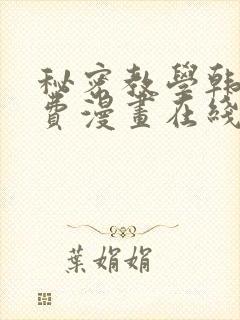 秘密教學韩
費漫畫在线
葉娟娟